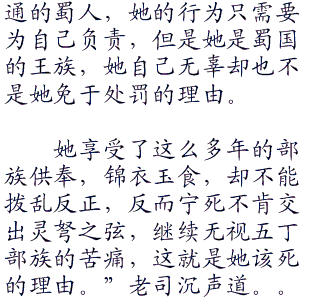 通的蜀人，她的行为只需要
为自己负责，但是她是蜀国
的王族，她自己无辜却也不
是她免于处罚的理由。
她享受了这么多年的部
族供奉，锦衣玉食，却不能
拨乱反正，反而宁死不肯交
出灵弩之弦，继续无视五丁
部族的苦痛，这就是她该死
的理由。”老司沉声道。。